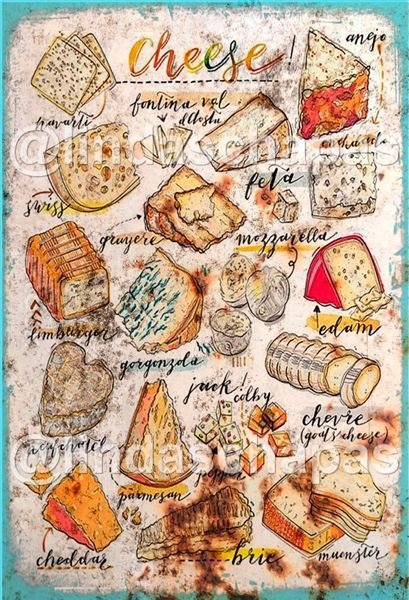 cheese!
anejo
havarti
fontina val
d'Aosta
@lindaschapas
feta
swiss
gruyere
mozzarella
limburger
edam
gorgonzola
jack!
colby
chevre
(goat's cheese)
neufchatel
@lindaschapas
pepper
parmesan
cheddar
brie
muenster